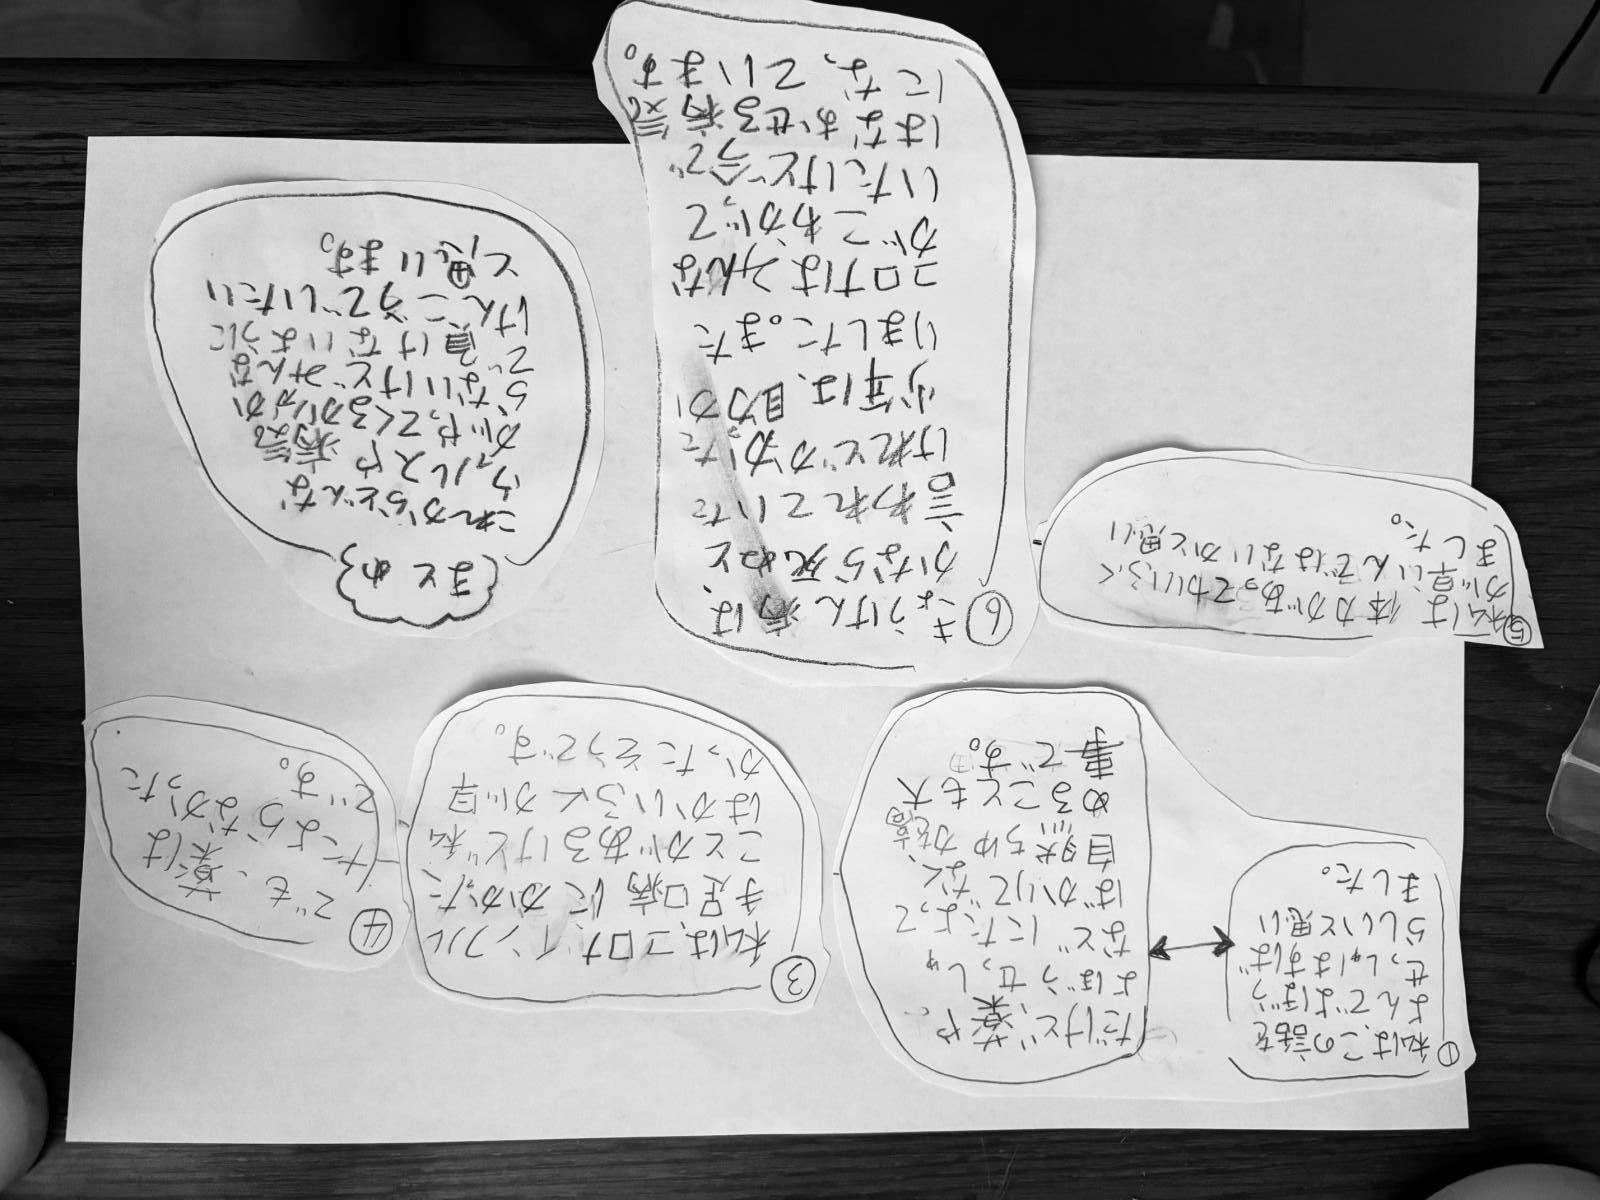 ①
私は、この話を
よんでよぼう
せっしゅはすば
らしいと思い
ました。
だけど、薬や、
よぼうせっしゅ
などにたよって
ばかりでなく、
自然ちゆ力を高
めることも大
事です。
③
私は、コロナ、インフル
手足口病にかかった
ことがあるけど私
はかいふくが早
かったそうです。
④
でも、薬は
たよらなかった
です。
⑤
私は体力があってかいふく
が早いんではないかと思い
ました。
⑥
きょうけん病は、
かなら死ぬと
言われていた
けれどかかった
少年は、助か
りました。また
コロナはみんな
がこわがって
いたけど今で
はなおせる病気
になっています。
まとめ
これからどんな
ウィルスや病気
がやってくるかわか
らないけどみんな
で負けないように
けんこうでいたい
と思います。